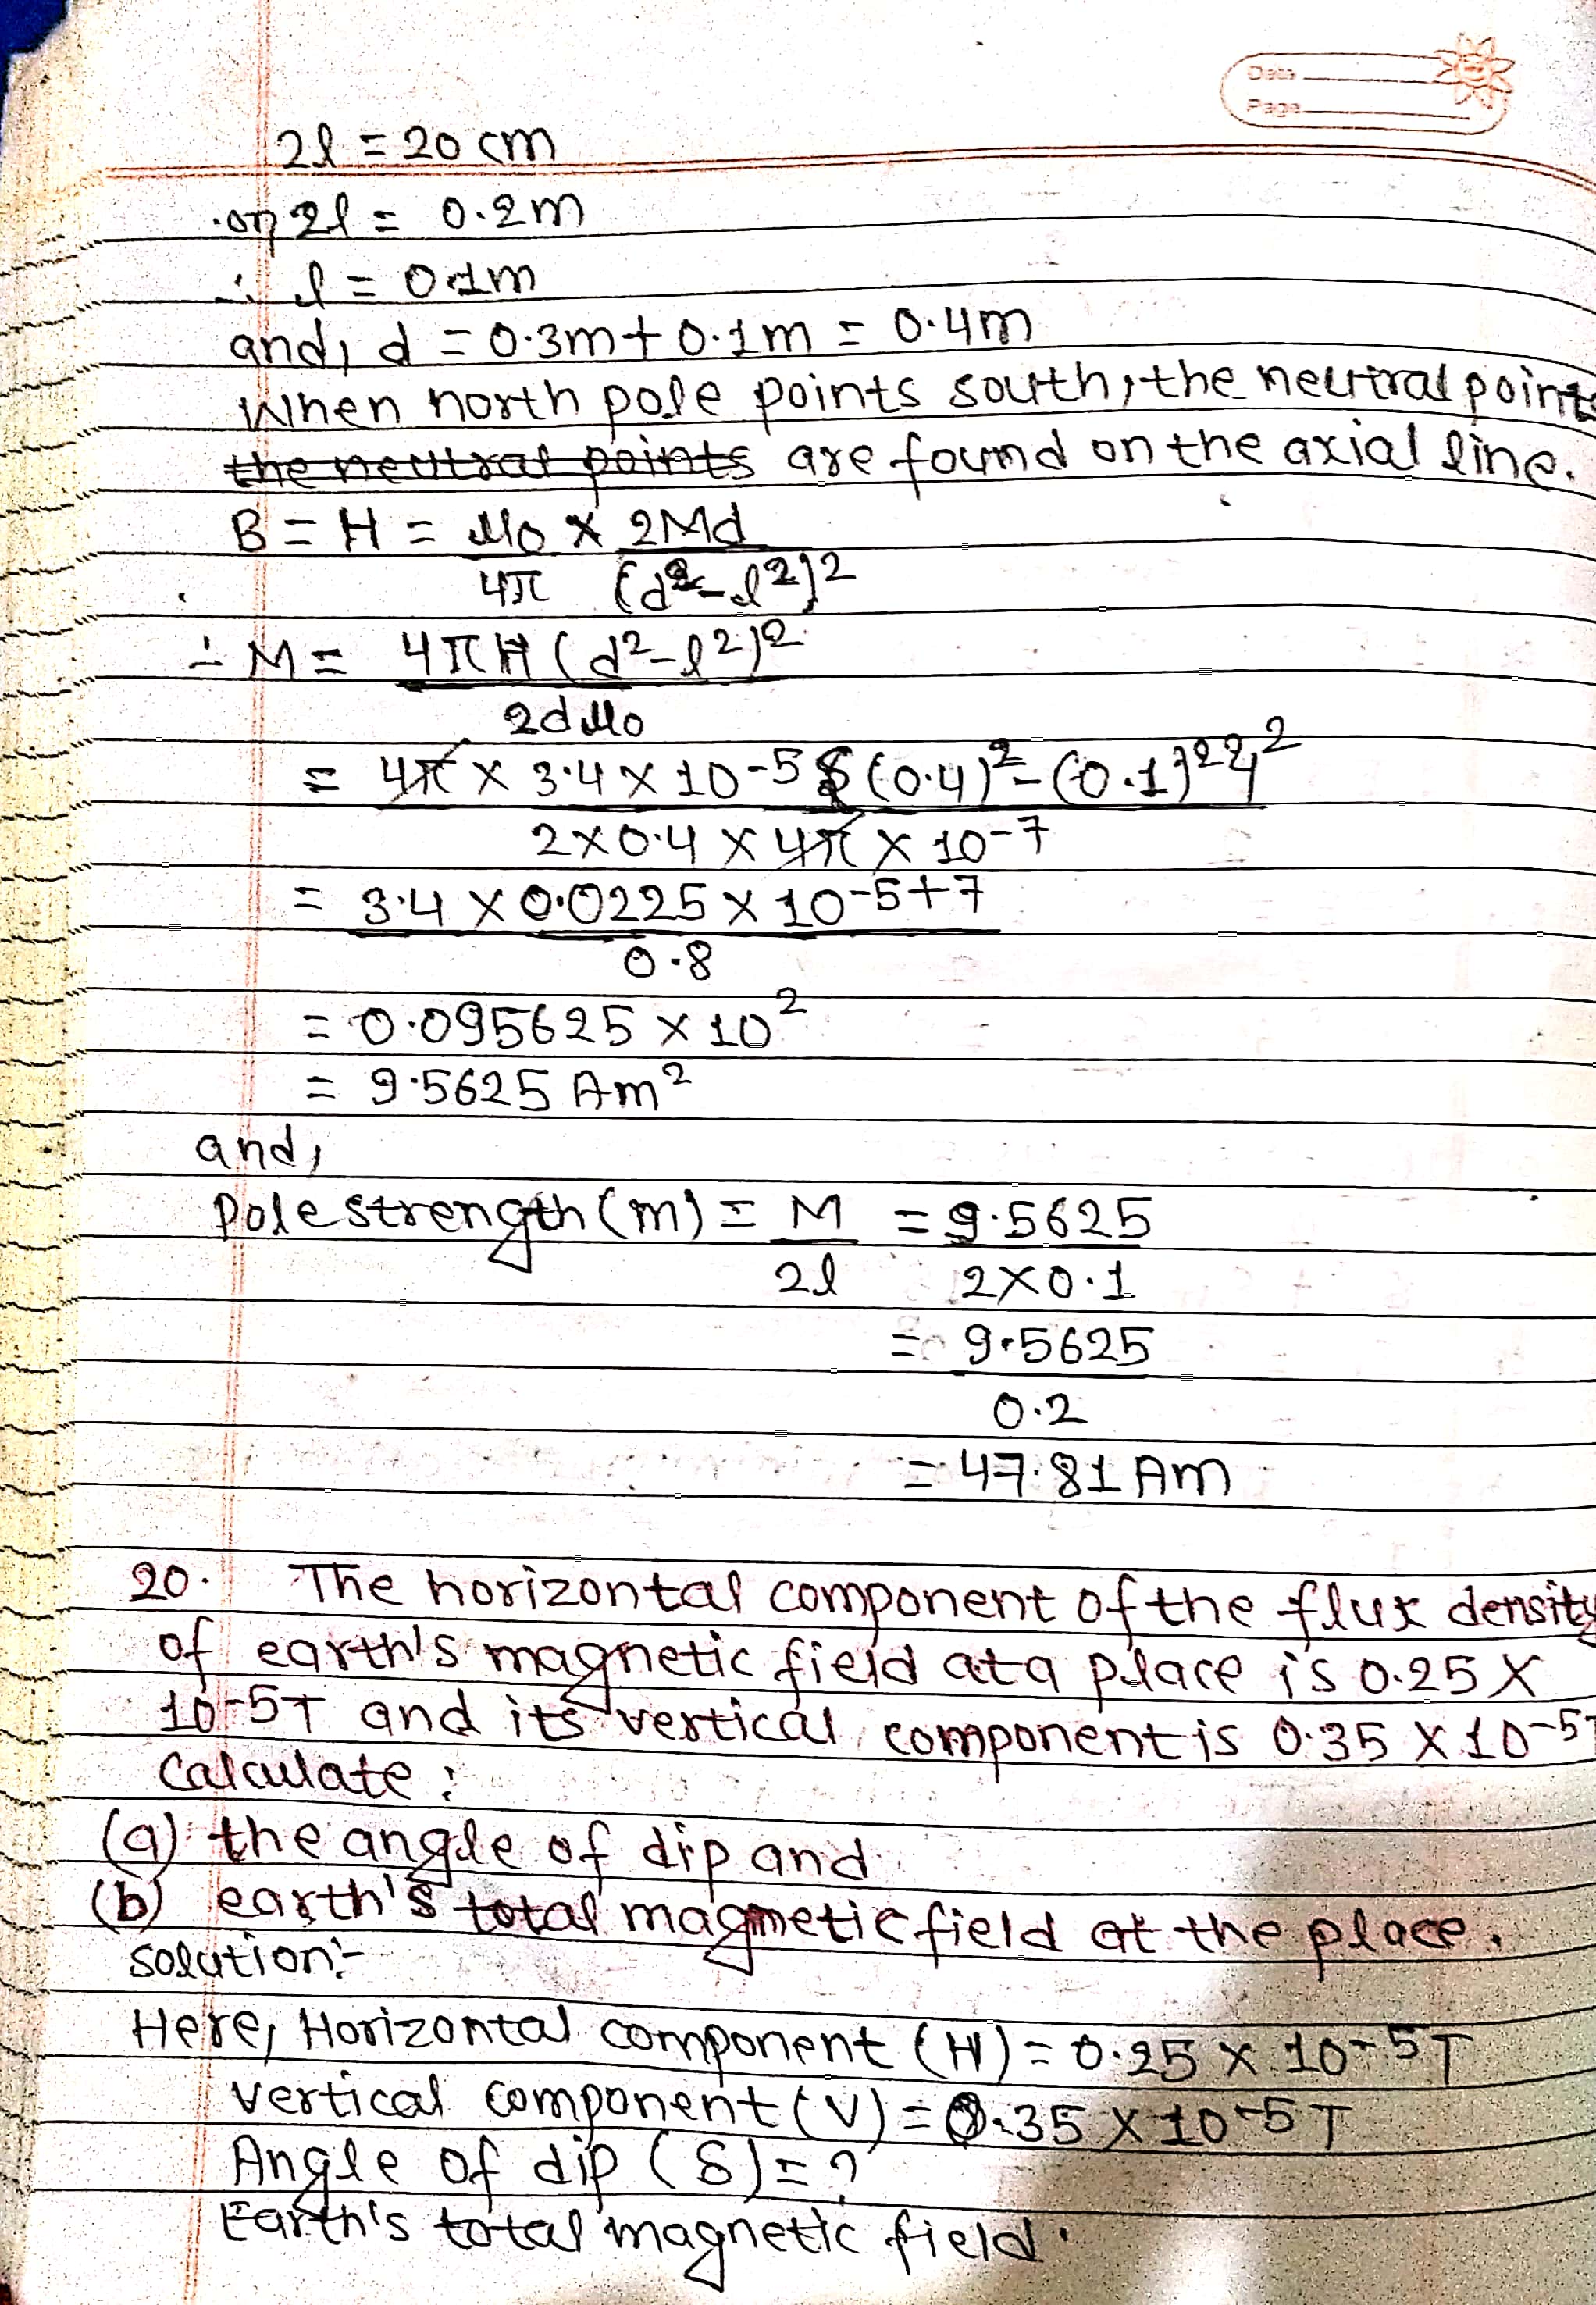 Date
Page
2l = 20 cm
or, 2l = 0.2m
∴ l = 0.1m
and, d = 0.3m + 0.1m = 0.4m
When north pole points south, the neutral points
the neutral points are found on the axial line.
B = H = μ0/4π × 2Md/(d²-l²)²
∴ M = 4πH(d²-l²)²/2dμ0
= 4π × 3.4 × 10-5 {(0.4)²-(0.1)²}²/2×0.4×4π×10-7
= 3.4 × 0.0225 × 10-5+7/0.8
= 0.095625 × 10²
= 9.5625 Am²
and,
Pole strength (m) = M/2l = 9.5625/2×0.1
= 9.5625/0.2
= 47.81 Am
20. The horizontal component of the flux density
of earth's magnetic field at a place is 0.25 ×
10-5T and its vertical component is 0.35 × 10-5T
Calculate :
(a) the angle of dip and
(b) earth's total magnetic field at the place.
Solution:-
Here, Horizontal component (H) = 0.25 × 10-5T
Vertical component (V) = 0.35 × 10-5T
Angle of dip (δ) = ?
Earth's total magnetic field.